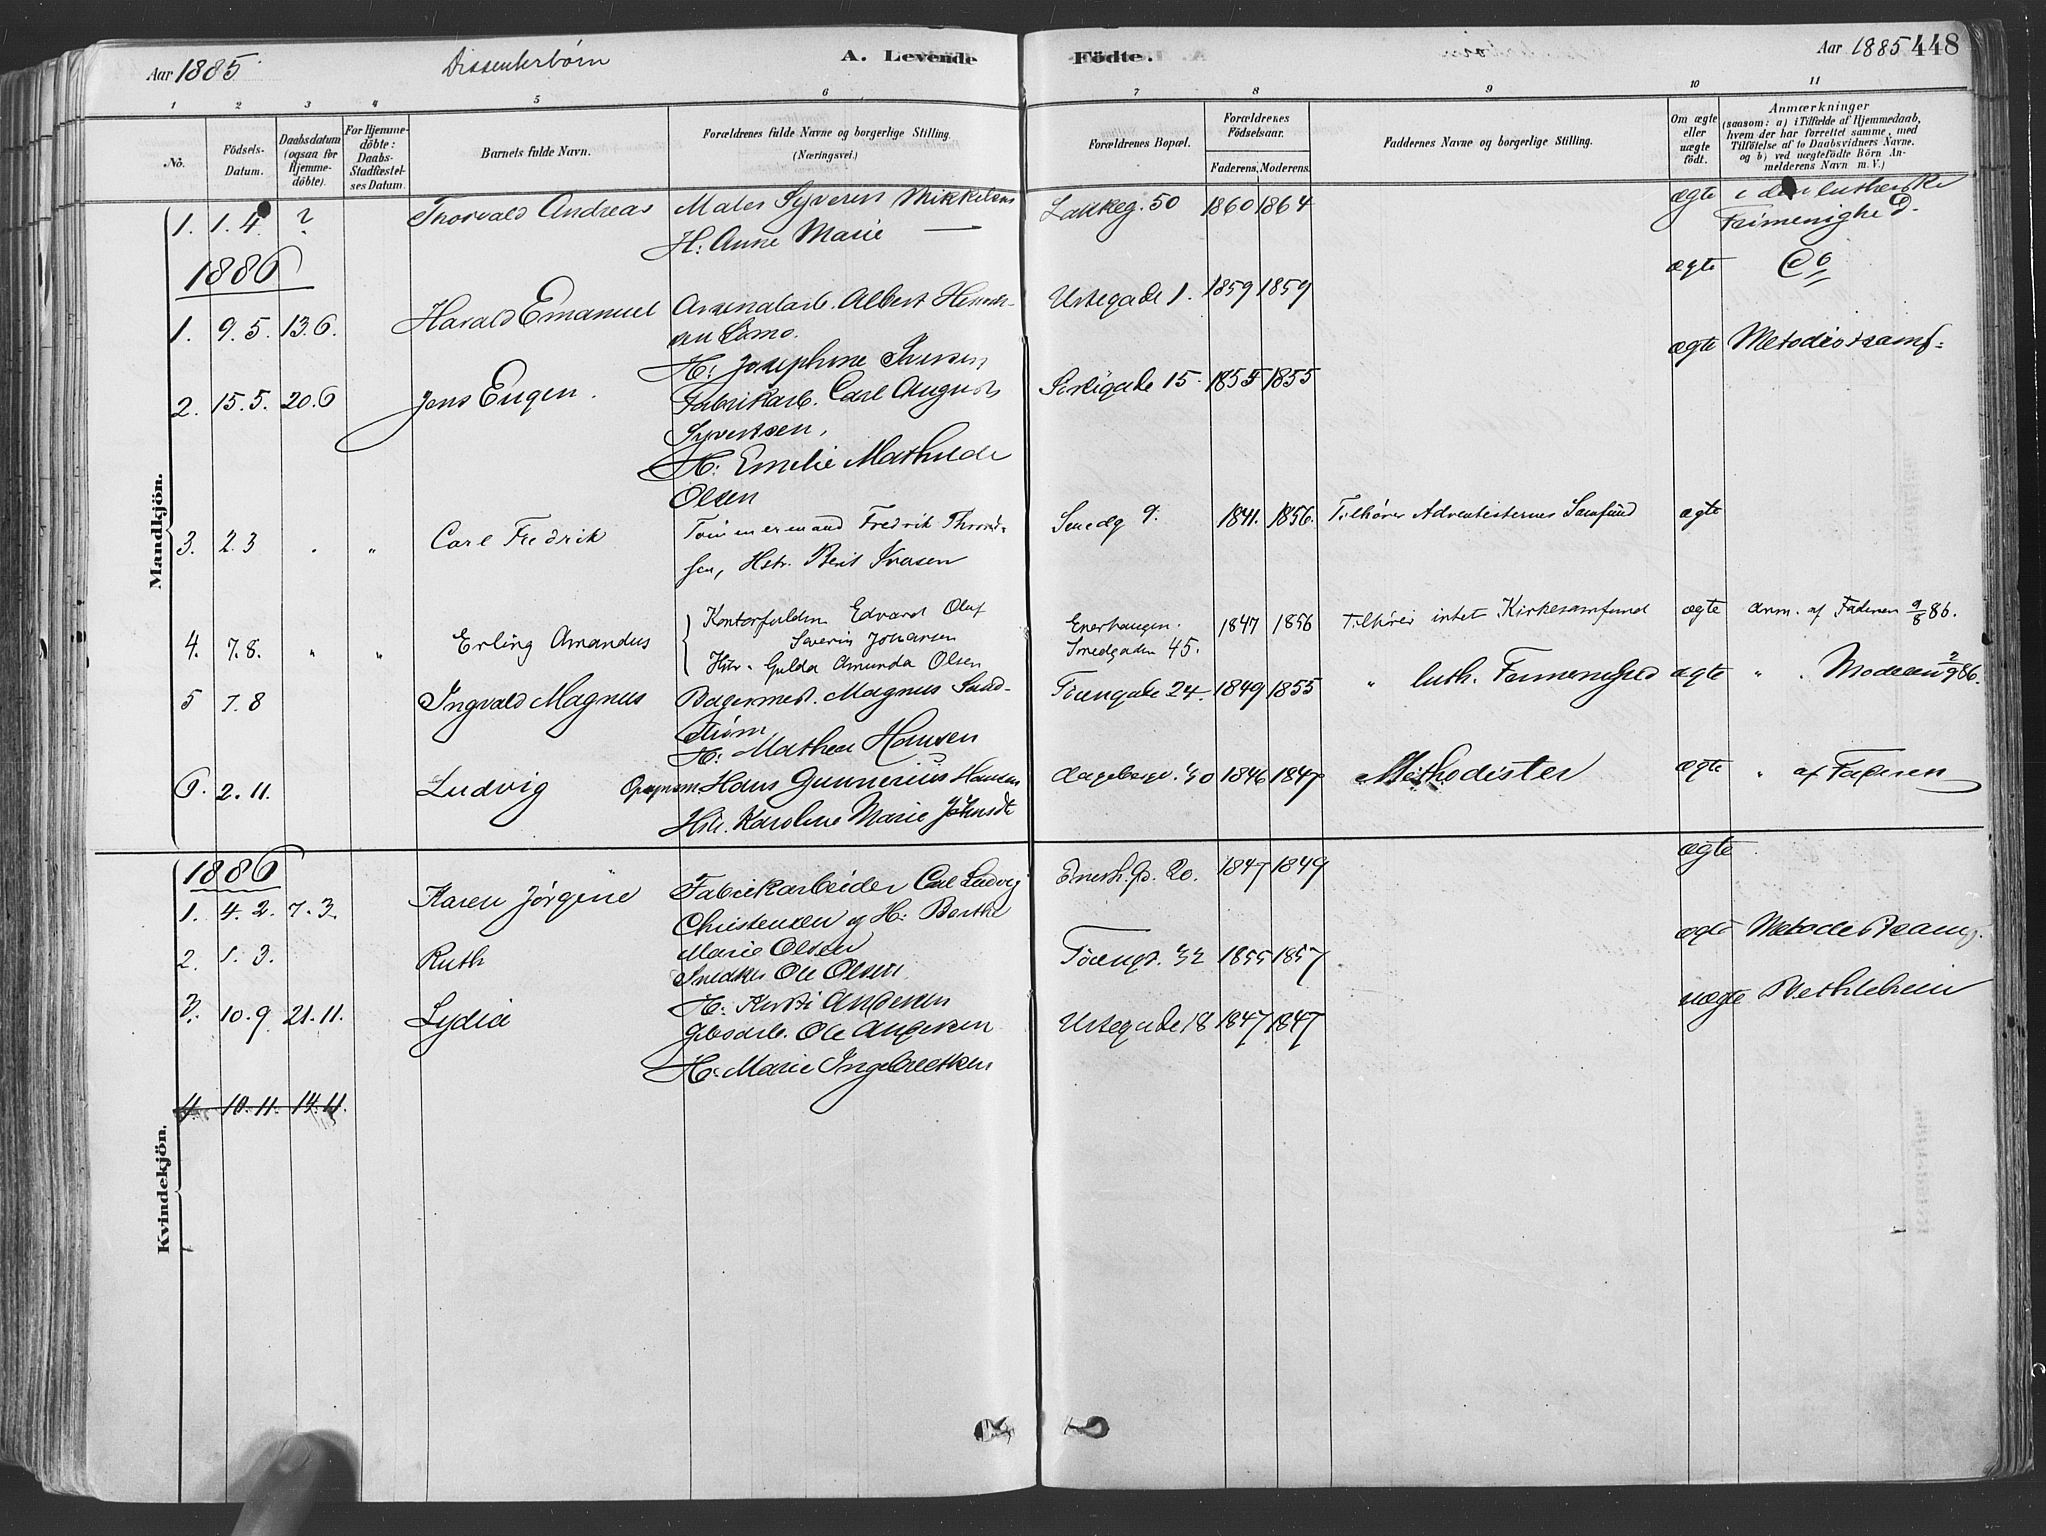 Aar 1885. Dissenterbørn A. Levende Födte. Aar 1885 448
1 2 3 4 5 6 7 8 9 10 11
No.
Födsels-Datum.
Daabsdatum (ogsaa for Hjemme-döbte).
For Hjemme-döbte: Daabs-Stadfæstel-ses Datum.
Barnets fulde Navn.
Forældrenes fulde Navne og borgerlige Stilling. (Næringsvei.)
Forældrenes Bopæl.
Forældrenes Födselsaar.
Faderens. Moderens.
Faddernes Navne og borgerlige Stilling.
Om ægte eller uægte födt.
Anmærkninger (saasom: a) i Tilfælde af Hjemmedaab, hvem der har forrettet samme, med Tilföielse af to Daabsvidners Navne. og b) ved uægtefödte Börn An-melderens Navn m. V.)
Mandkjön.
1. 1.4. ? Thorvald Andreas Maler Syveren Mikkelsen Lakkeg. 50 1860 1864 ægte i den lutherske
H. Anne Marie — Frimenighed.
1886 ægte Do
1. 9.5. 13.6. Harald Emanuel Arsenalarb. Albert Hennik- Urtegade 1. 1859 1859
sen Lømo.
H: Josephine Iversen ægte Metodistsamf:
2. 15.5. 20.6 Jens Eugen. Fabrikarb. Carl August 15. 1855 1855
Syvertsen,
H: Emilie Mathilde
Olsen
3. 2.3 . " Carl Fredrik Tømmermand Fredrik Thorvald- Smedg 9. 1841. 1856. Tilhører Adventisternes Samfund ægte
sen, Hstr. Berit Ivasen
4. 7.8. " " Erling Amandus Kontorfuldm Edvard Oluf Enerhaugen. 1847 1856 Tilhører intet Kirkesamfund ægte Anm. af Faderen 9/8 86.
Severin Johansen Smedgaden 45.
Hstr. Gulda Amunda Olsen
5 7.8 Ingvald Magnus Bagermest. Magnus Sand- Tøiengade 24 1849 1855 " luth. Frimenighed ægte " . Moderen 2/9 86.
strøm
H: Mathea Hansen
6. 2.11. Ludvig Opsynsm Hans Gunnerius Hansen 1846 1847 Methodister ægte " af Faderen
Hstr. Karoline Marie
Kvindekjön.
1886 ægte
1. 4.2. 7.3. Karen Jørgine Fabrikarbeider Carl Ludvig Enerh.gd. 20. 1847 1849
Christensen og H: Berthe
Marie Olsen ægte Metodistsamf.
2. 1.3. Ruth Snedker Ole Olsen Tøieng. 32 1855 1857
H: Kersti Andersen uægte Bethlehem
3. 10.9 21.11. Lydia Gibsarb. Ole Andersen Urtegade 18 1847 1847
H: Marie Ingebretsen
4. 10.11. 14.11.